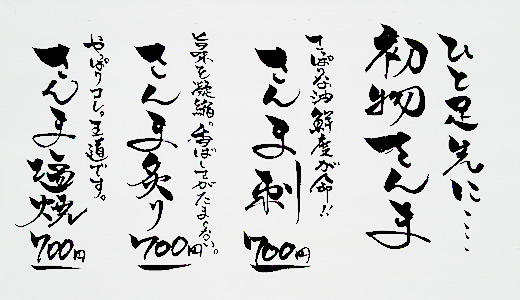 ひと足先に‥‥
初物さんま
さっぱりな油鮮度が命!!
さんま刺
700円
旨味を凝縮。香ばしさがたまらない。
さんま炙り
700円
やっぱりコレ。王道です。
さんま塩焼
700円